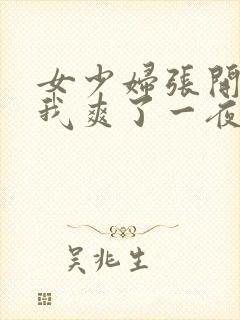 女少婦張開
我爽了一夜
吴兆生